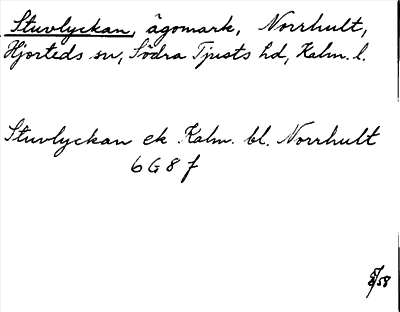 Stuvlyckan, ägomark, Norrhult,
Hjorteds sn, Södra Tjusts hd, Kalm. l.
Stuvlyckan ek. Kalm. bl. Norrhult
6 G 8 f